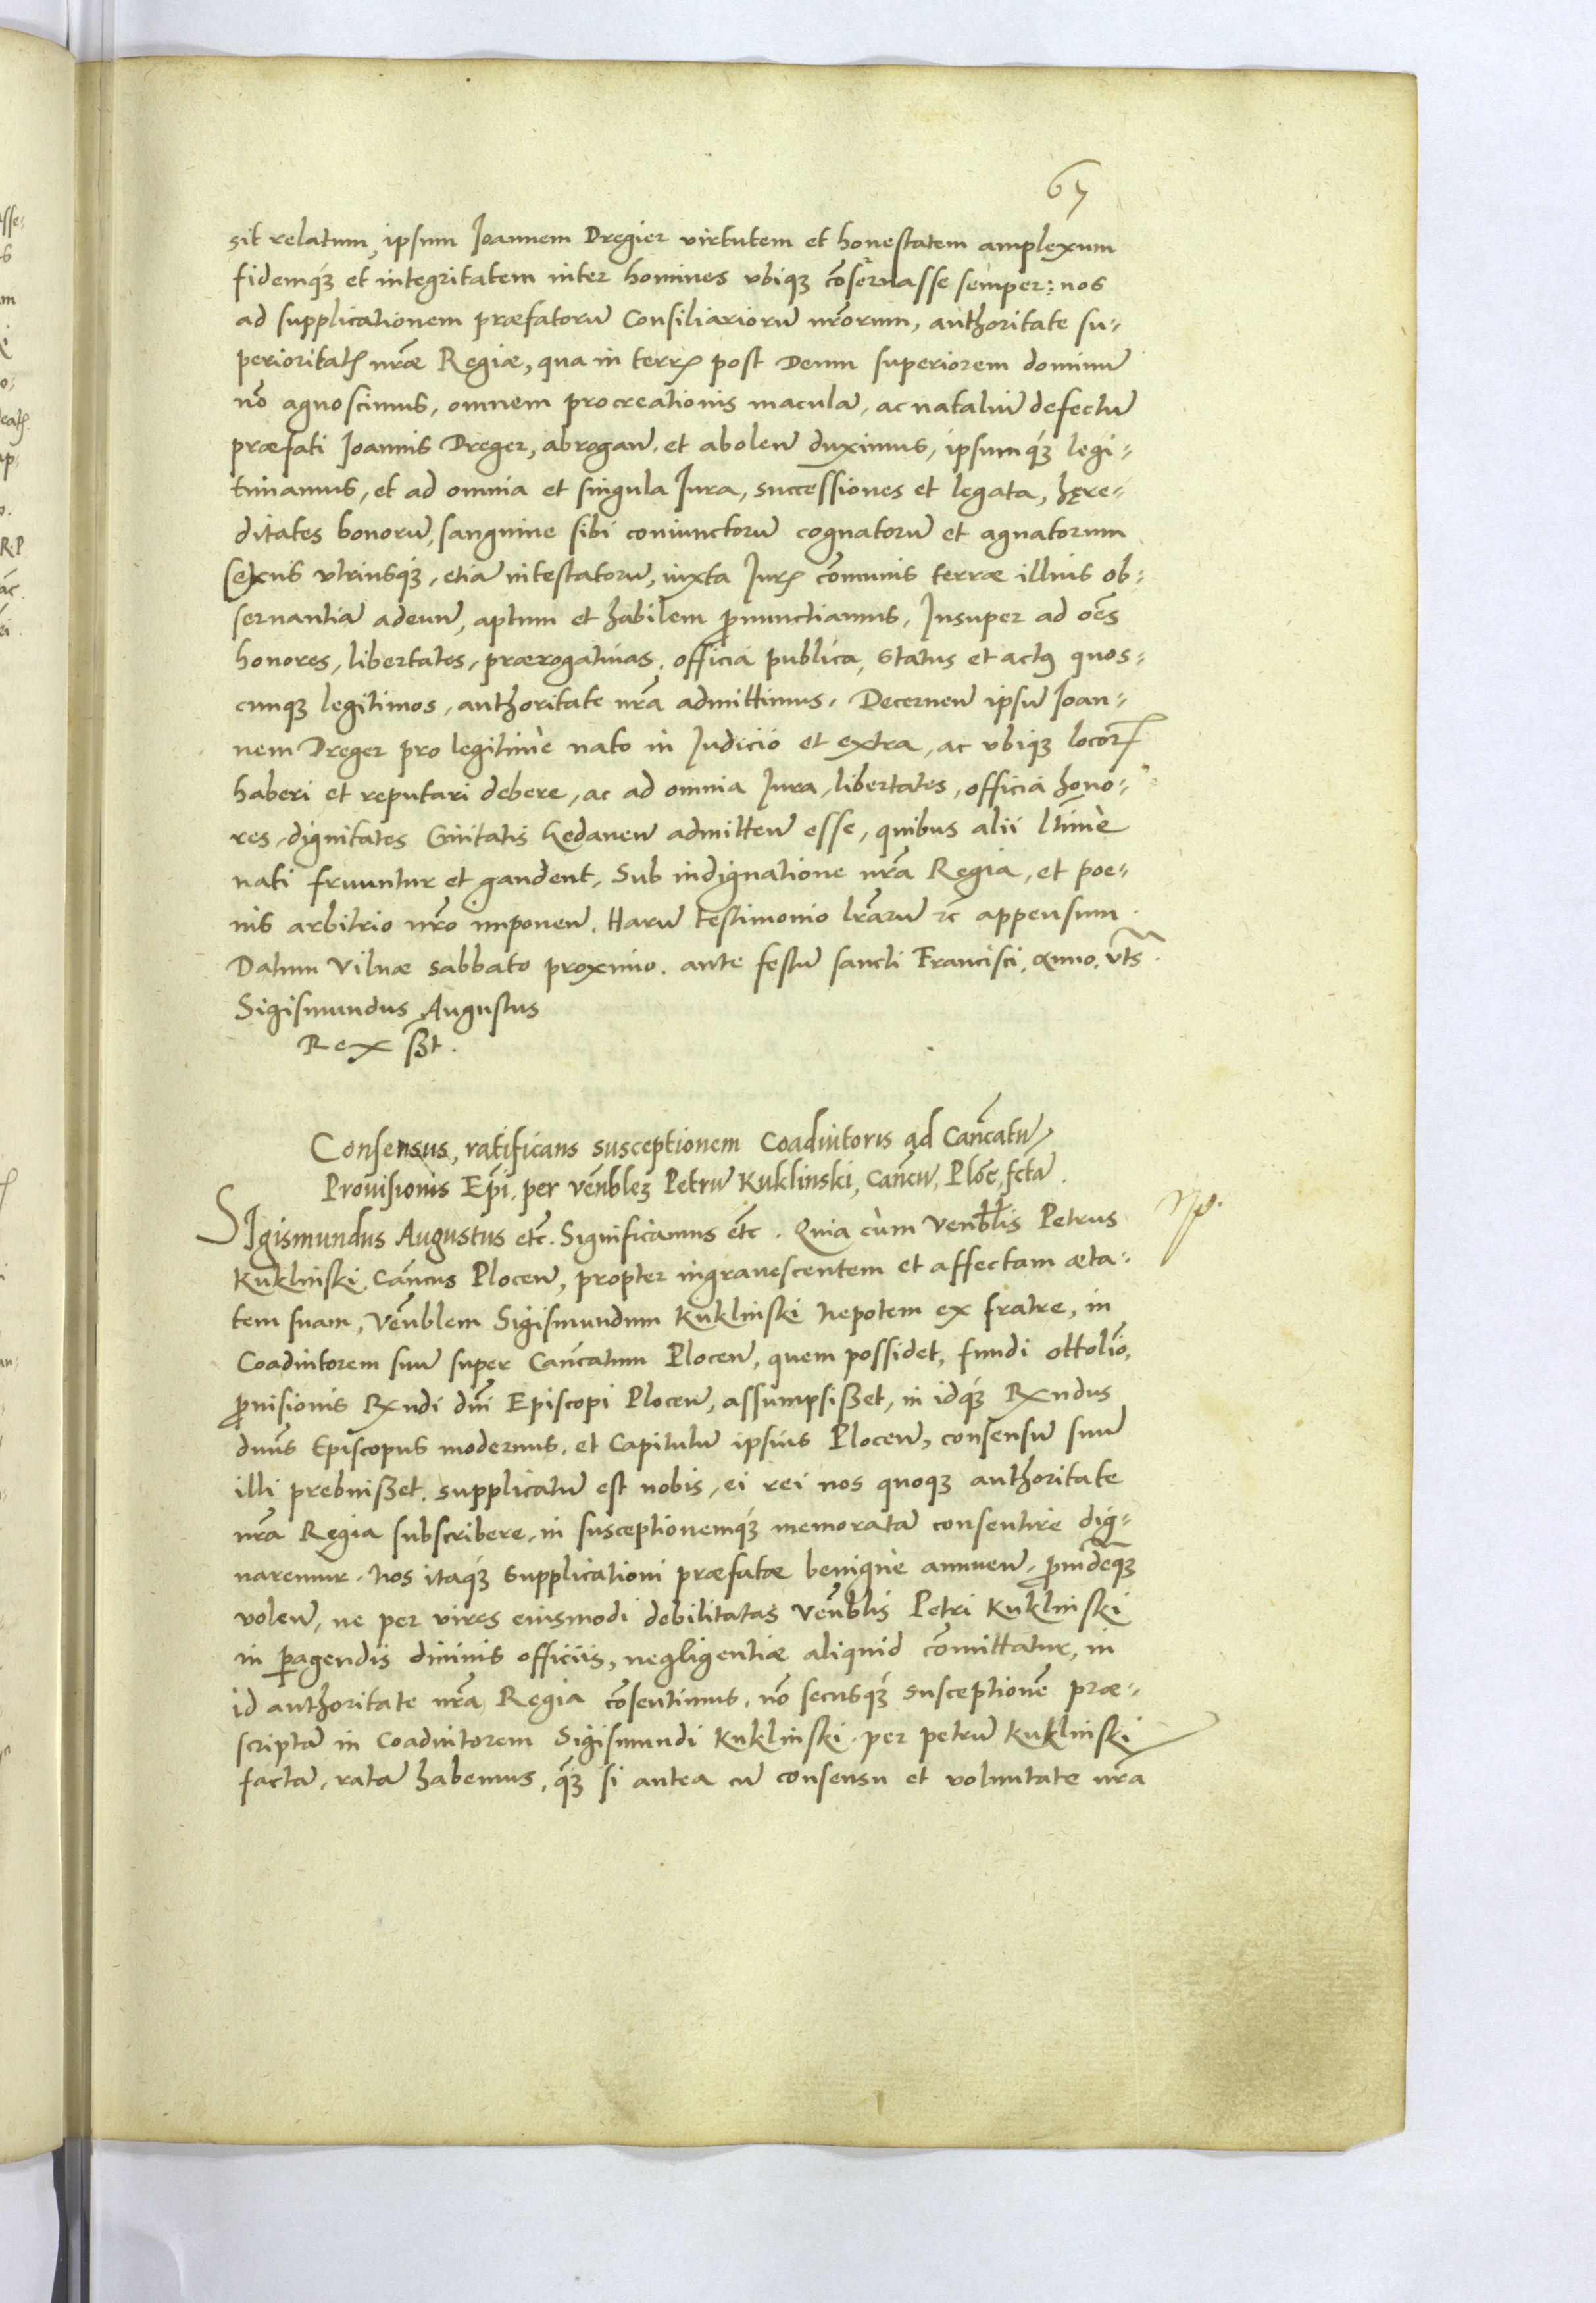 67
sit relatum, ipsum Joannem Dregier virtutem et honestatem amplexum
fidemq́ꝫ et integritatem inter homines vbiqꝫ cōseruasse semper: nos
ad supplicationem præfatorū Consiliariorū nr̄orum, authoritate su-
perioritatꝭ nr̄æ Regiæ, qua in terrꝭ post Deum superiorem dominū
nō agnoscimus, omnem procreationis maculā, ac nataliū defectū
præfati Joannis Dreger, abrogan̄. et abolen̄ duximus, ipsumq́ꝫ legi-
timamus, et ad omnia et singula Jura, successiones et legata, hęre-
ditates bonorū, sanguine sibi coniunctorū cognatorū et agnatorum
sexus vtriusqꝫ, etiā intestatorū, iuxta Jurꝭ cōmunis terræ illius ob-
seruantiā adeun̄, aptum et habilem ꝓnunctiamus, Insuper ad oēs
honores, libertates, prærogatiuas, officia publica, status et actꝰ quos-
cunqꝫ legitimos, authoritate nr̄a admittimus. Decernen̄ ipsū Joan-
nem Dreger pro legitimè nato in Judicio et extra, ac vbiqꝫ locorꝝ
haberi et reputari debere, ac ad omnia Jura, libertates, officia hono-
res, dignitates Ciuitatis Gedanen̄ admitten̄ esse, quibus alii ltīmè
nati fruuntur et gaudent, Sub indignatione nr̄a Regia, et poe-
nis arbitrio nr̄o imponen̄. Harū testimonio lr̄arū rc̄ appensum.
Datum Vilnæ Sabbato proximo. ante festū sancti Francisci, Anno, vts̄.
Sigismundus Augustus
Rex ßt.
Consensus, ratificans susceptionem Coadiutoris ad Can̄catū
Prouisionis Ep̄i, per ven̄bleꝫ Petrū Kuklinski, Can̄cū, Ploc̄, fctā.
SIgismundus Augustus etc̄. Significamus etc̄. Quia cum Venb̄lis Petrus
Kuklinski Can̄cus Plocen̄, propter ingrauescentem et affectam æta-
tem suam, Ven̄blem Sigismundum Kuklinski Nepotem ex fratre, in
Coadiutorem suū super Can̄catum Plocen̄, quem possidet, fundi ottoliō,
ꝓuisionis Rx̄ndi dn̄i Episcopi Plocen̄, assumpsißet, in idq́ꝫ Rx̄ndus
dn̄us Episcopus modernus, et Capitulū ipsius Plocen̄, consensū suū
illi prebuißet. supplicatū est nobis, ei rei nos quoqꝫ authoritate
nr̄a Regia subscribere, in susceptionemq́ꝫ memoratā consentire dig-
naremur. Nos itaq́ꝫ supplicationi præfatæ benignè annuen̄, ꝓindeqꝫ
volen̄, ne per vires eiusmodi debilitatas Ven̄blis Petri Kuklinski
in ꝑagendis diuinis officiis, negligentiæ aliquid cōmittatur, in
id authoritate nr̄a Regia cōsentimus, nō secusq́ꝫ susceptionē præ-
scriptā in Coadiutorem Sigismundi Kuklinski per Petrū Kuklinski
factā, ratā habemus, q̄ꝫ si antea cū consensu et voluntate nr̄a